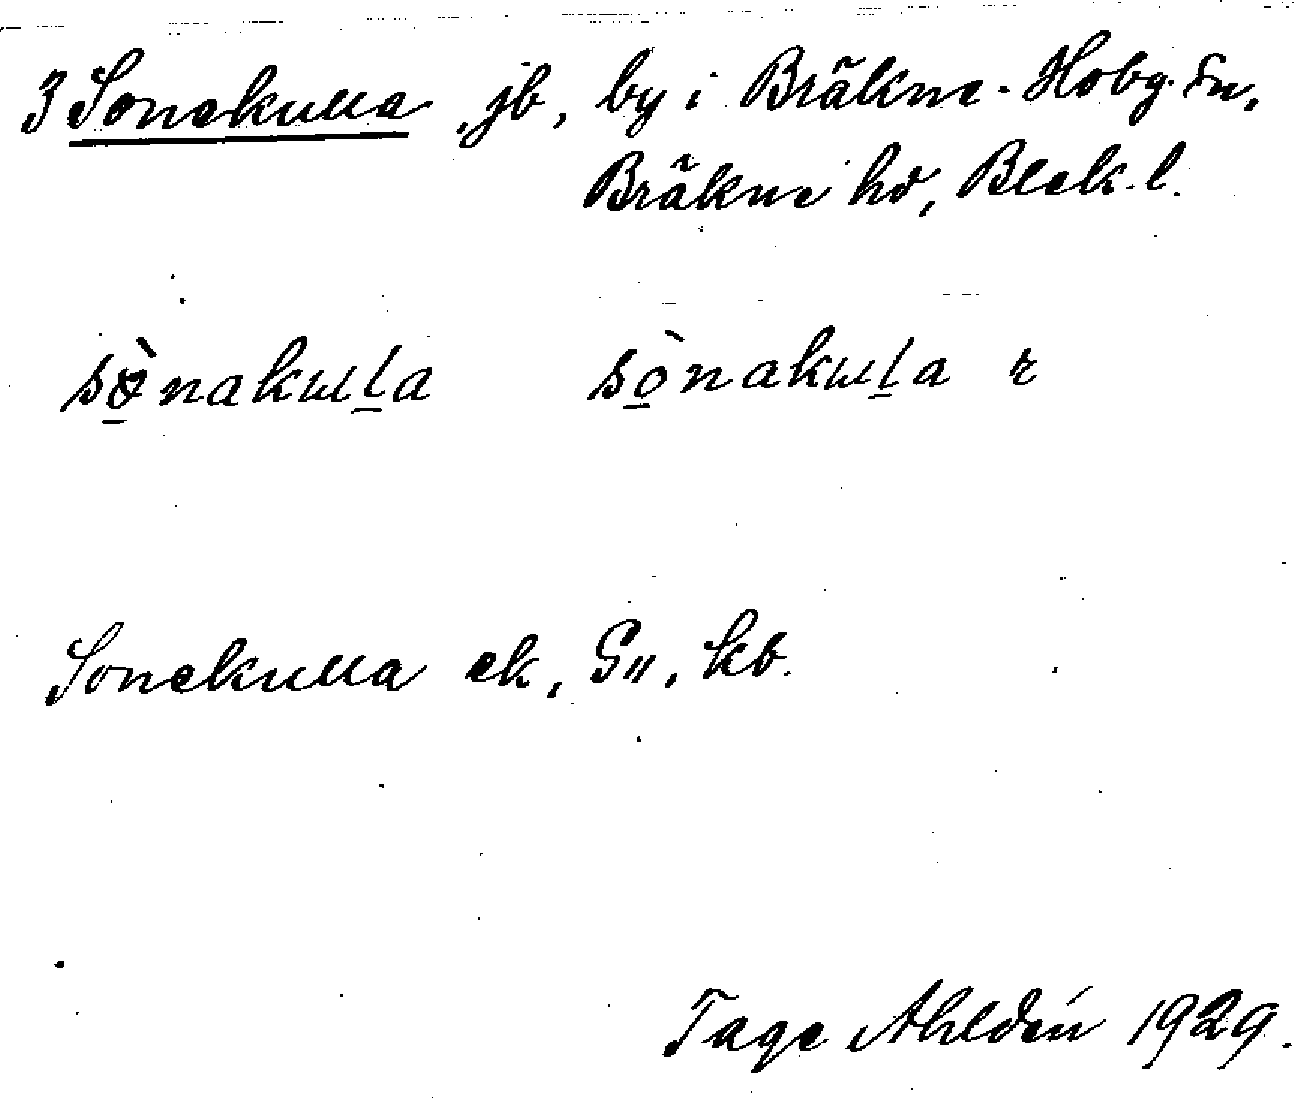 3 Sonekulla jb, by i Bräkne-Hobg. sn,
Bräkne hd, Blek. l.
sò̱nakɯḻa sò̱nakɯḻa r
Sonekulla ek, G11, kb.
Tage Ahldén 1929.